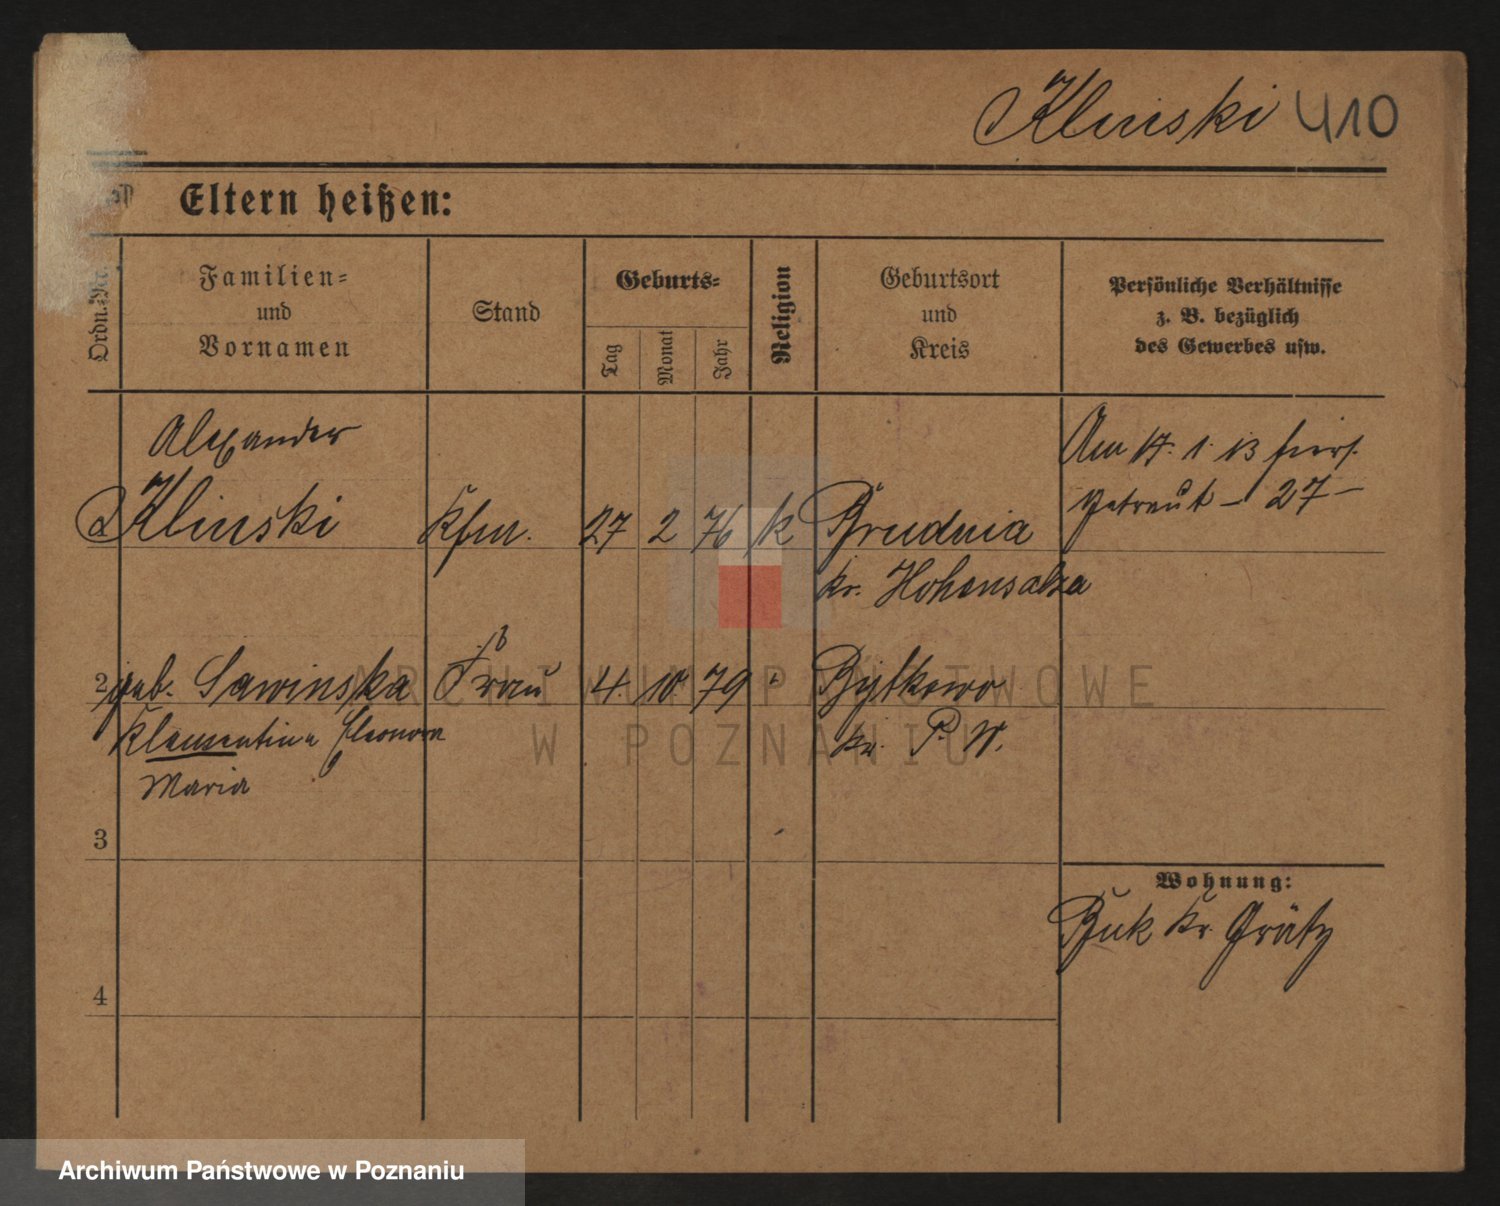 Klinski 410
Eltern heißen:
Ordn.-Nr.
Familien-
und
Vornamen
Stand
Geburts-
Tag
Monat
Jahr
Religion
Geburtsort
und
Kreis
Persönliche Verhältnisse
z. B. bezüglich
des Gewerbes usw.
Alexander
Klinski Kfm. 27 2 76 k Brudnia
Kr. Hohensalza
Am 17. 1. 13 hiers.
getraut – 27 –
2 geb. Sawinska Frau 4. 10 79 " Bytkowo
Klementine Eleonora
Kr. P. W.
Maria
3
Wohnung:
Buk Kr. Grätz
4
ARCHIWUM PAŃSTWOWE
W POZNANIU
Archiwum Państwowe w Poznaniu